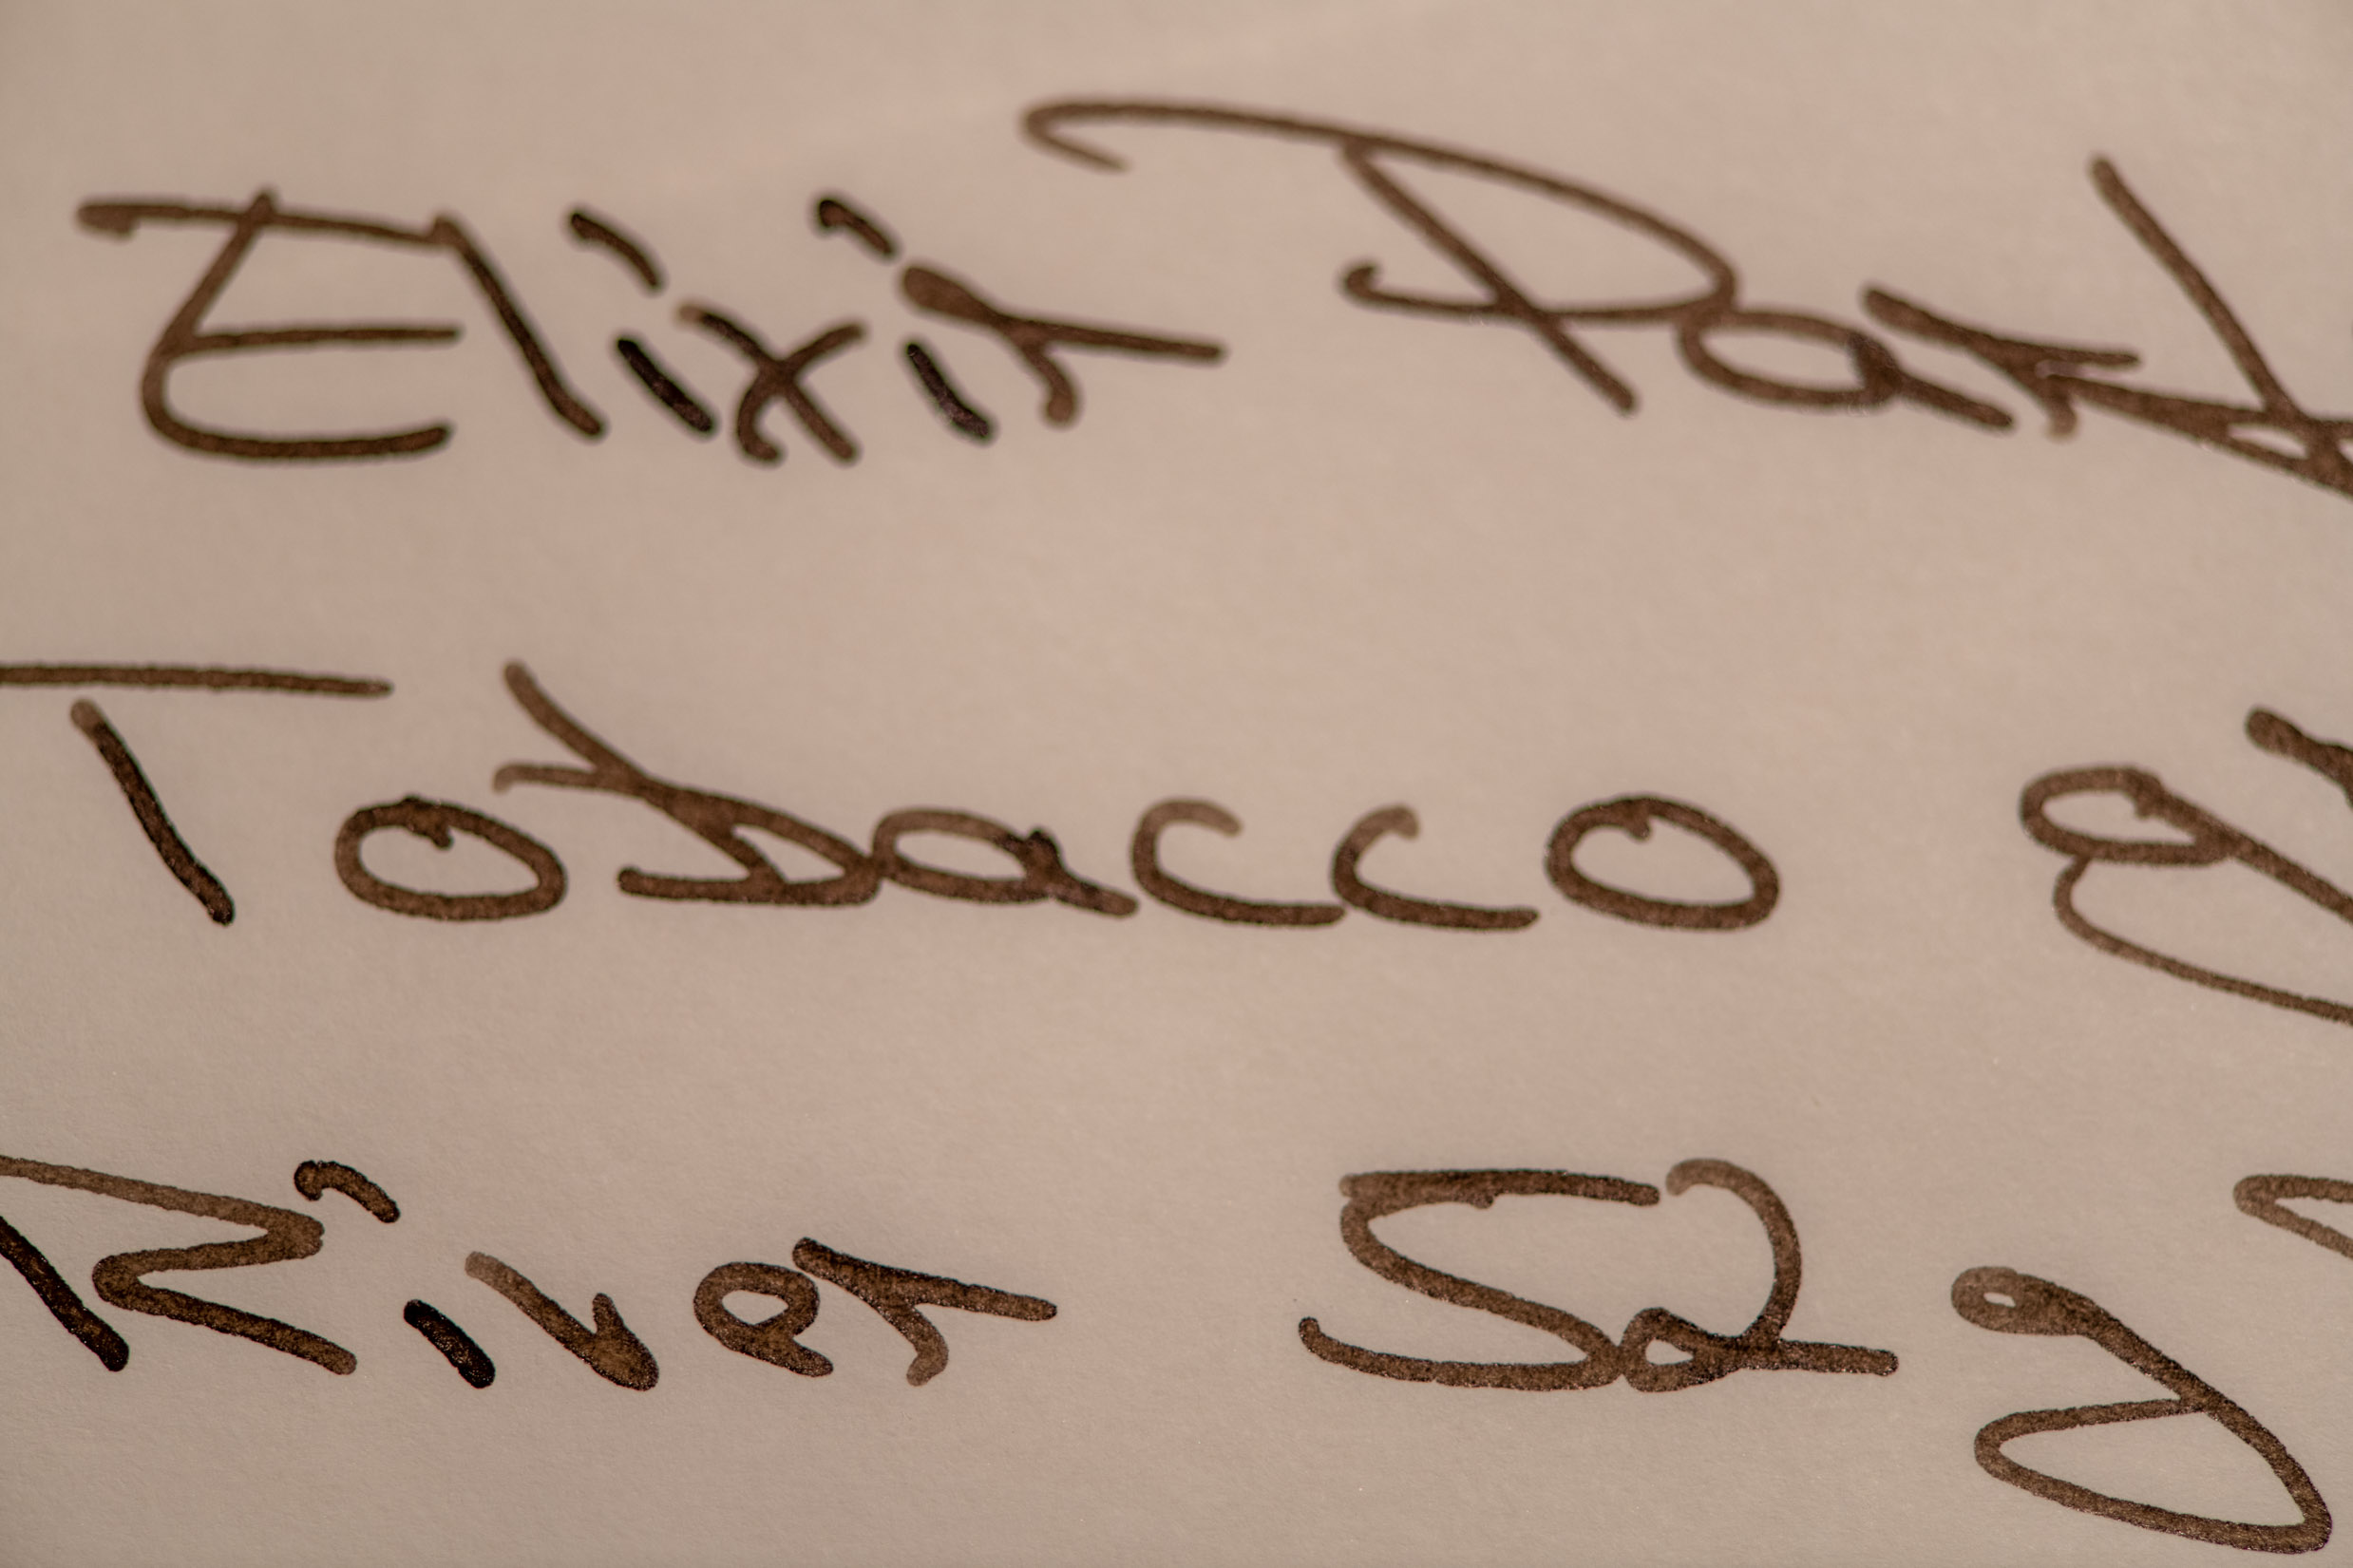 Elixir Park
Tobacco
River Sag